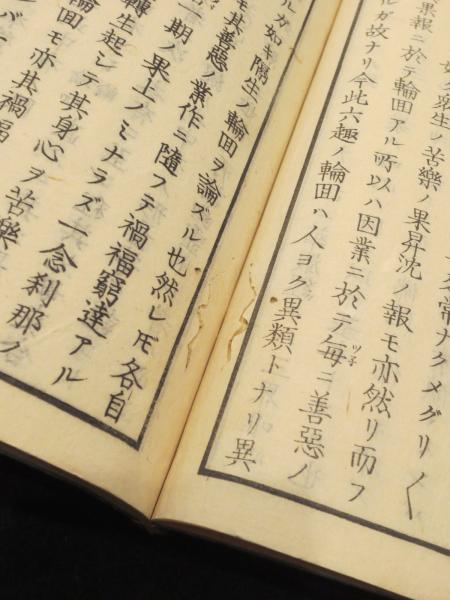 常ナクメグリ〱
如ク衆生ノ苦樂ノ果昇沈ノ報モ亦然リ而フ
果報ニ於テ輪回アル所以ハ因業ニ於テ毎ニ善惡ノ
ツネ
ルガ故ナリ今此六趣ノ輪回ハ人ヨク異類トナリ異
ルガ如キ隔生ノ輪回ヲ論ズル也然レ𪜈各自
モ其善惡ノ業作ニ隨フテ禍福窮達アル
一期ノ果上ノミナラズ一念刹那ノ
轉生起シテ其身心ヲ苦樂
輪回モ亦其禍福
バ